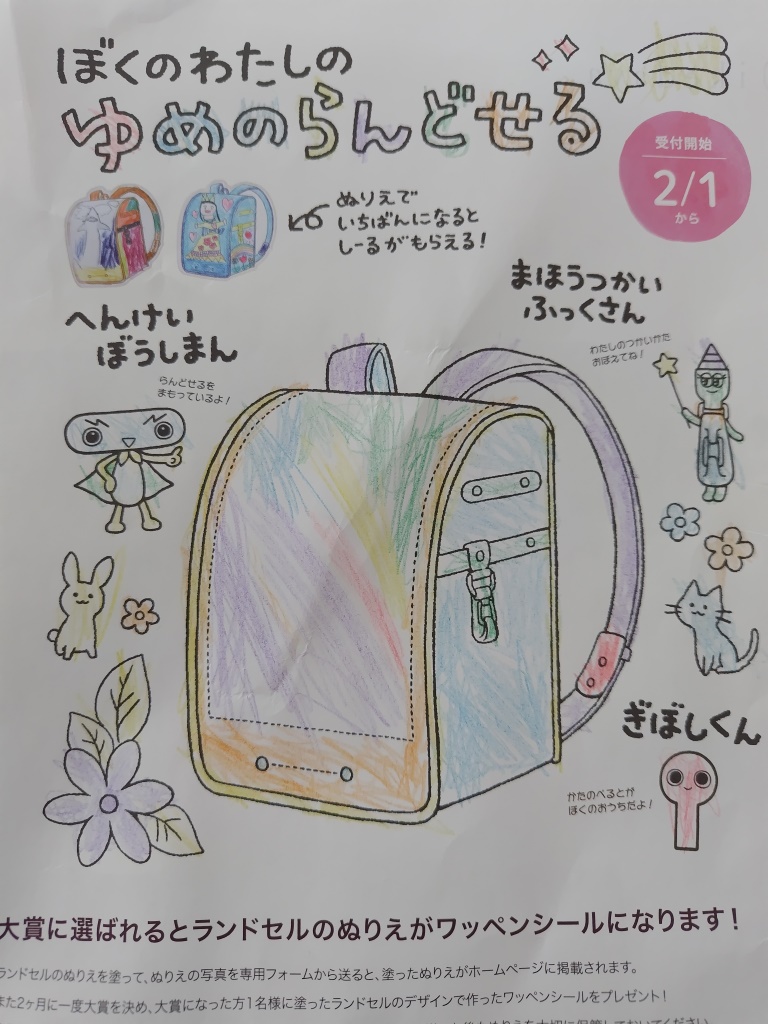 ぼくのわたしの
ゆめのらんどせる
受付開始
2/1
から
ぬりえで
いちばんになると
しーるがもらえる!
へんけい
ぼうしまん
らんどせるを
まもっているよ!
まほうつかい
ふっくさん
わたしのつかいかた
おぼえてね!
ぎぼしくん
かたのべるとが
ぼくのおうちだよ!
大賞に選ばれるとランドセルのぬりえがワッペンシールになります!
ランドセルのぬりえを塗って、ぬりえの写真を専用フォームから送ると、塗ったぬりえがホームページに掲載されます。
また2ヶ月に一度大賞を決め、大賞になった方1名様に塗ったランドセルのデザインで作ったワッペンシールをプレゼント!